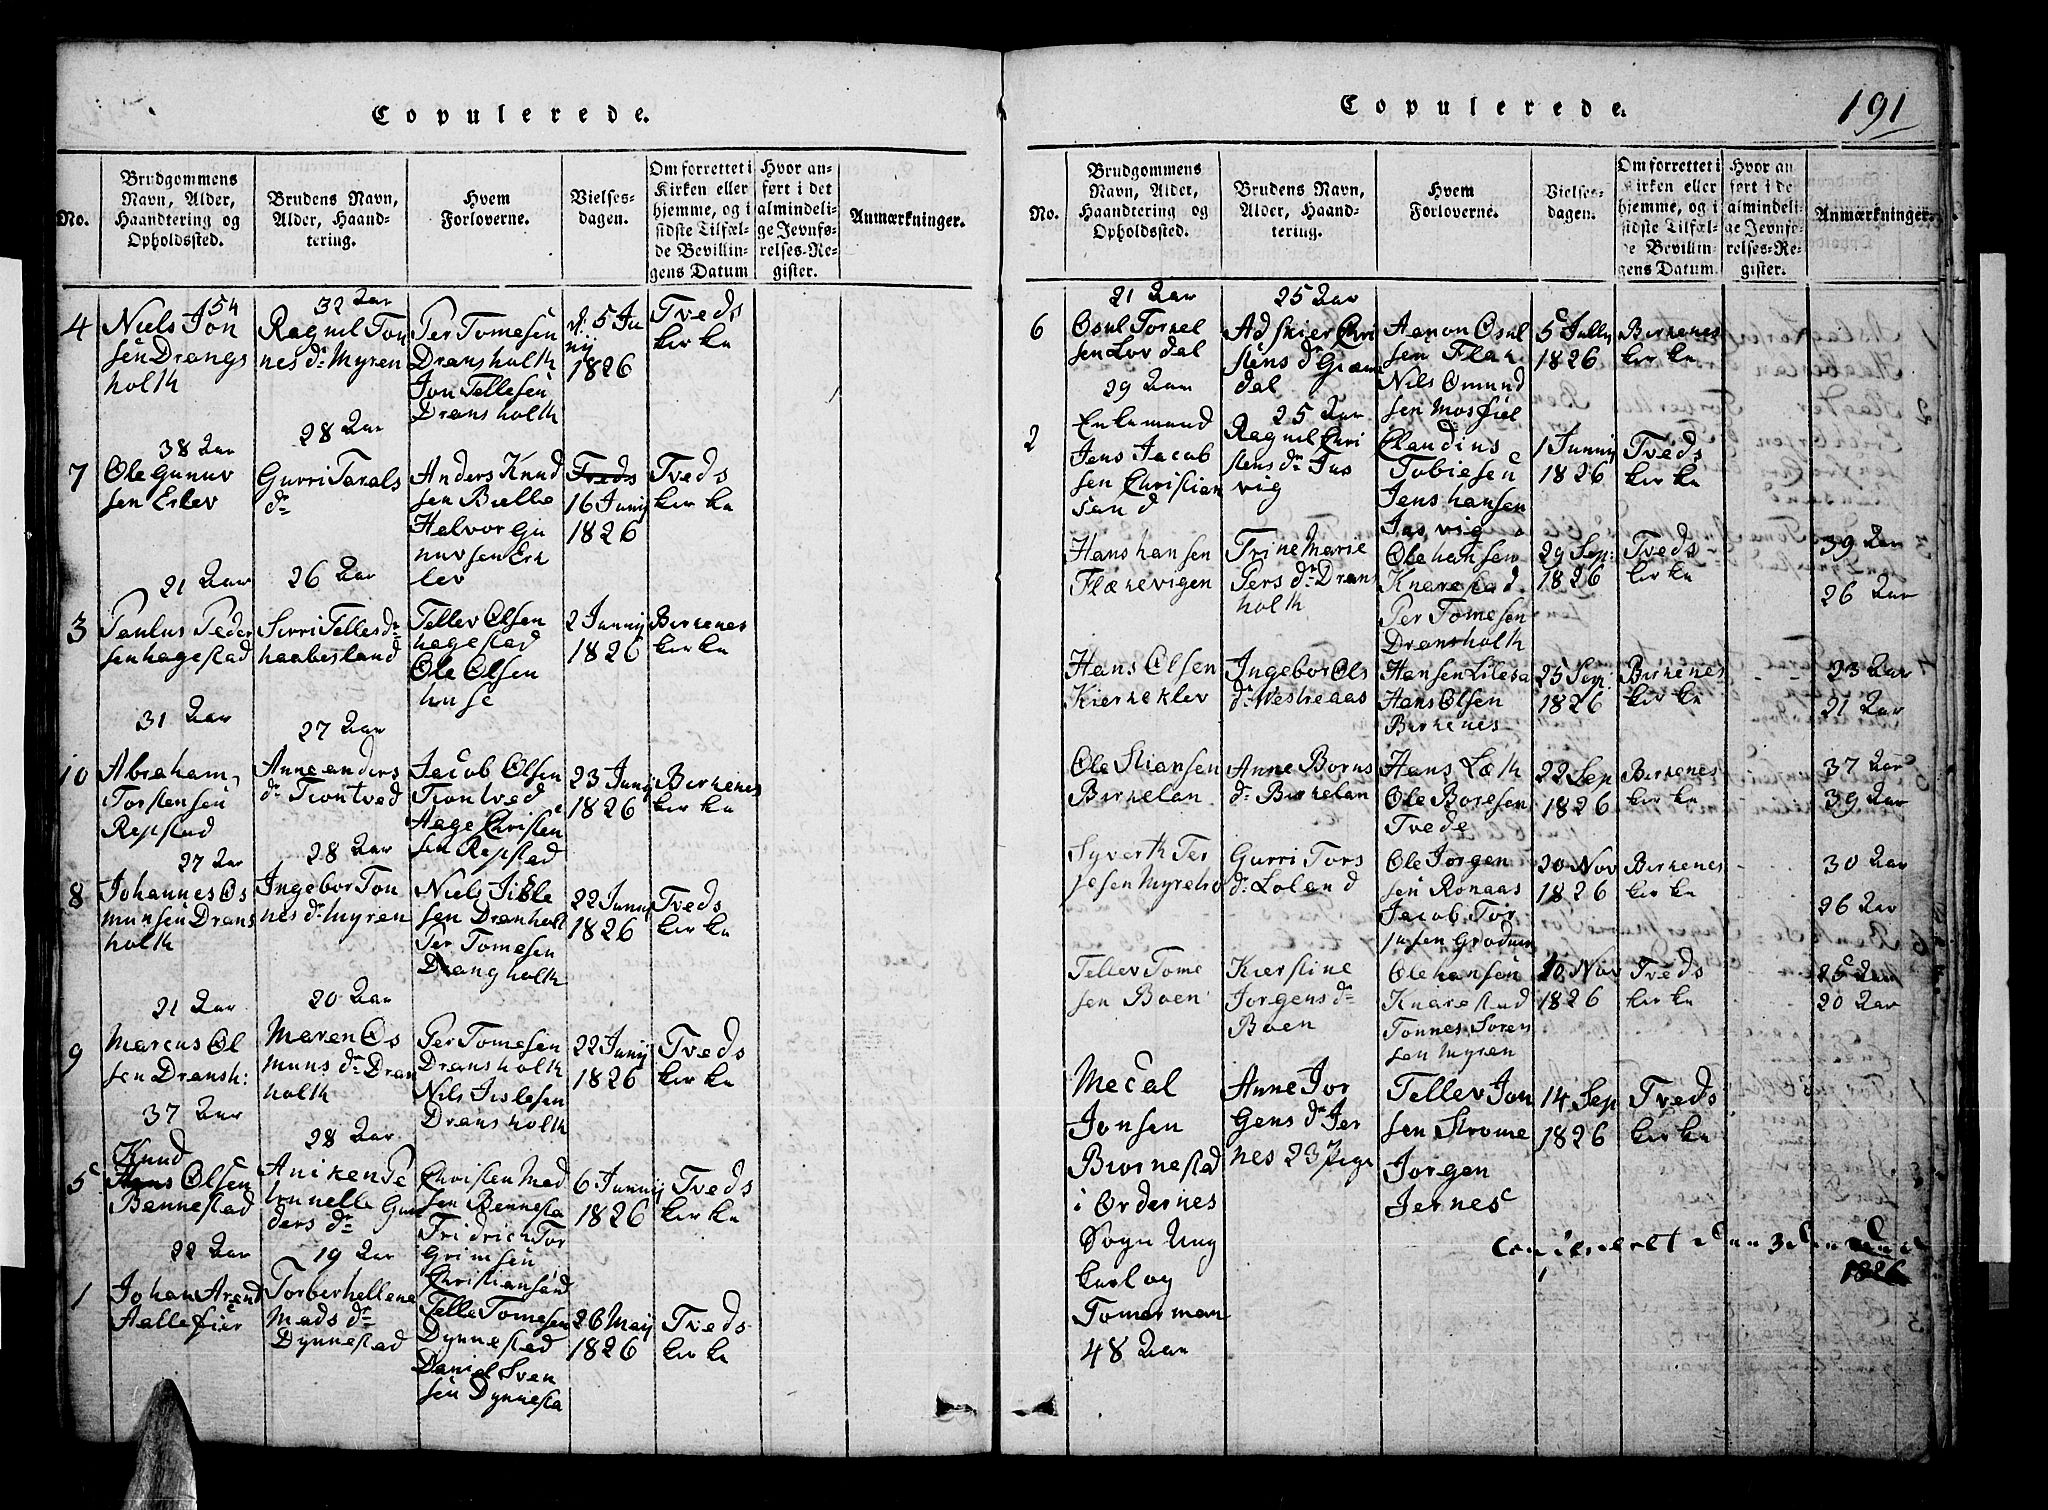 Copulerede.
No.
Brudgommens
Navn, Alder,
Haandtering og
Opholdssted.
Brudens Navn,
Alder, Haand-
tering.
Hvem
Forloverne.
Vielses-
dagen.
Om forrettet i
Kirken eller
hjemme, og i
sidste Tilfæl-
de Bevillin-
gens Datum
Hvor an-
ført i det
almindeli-
ge Jevnfø-
relses-Re-
gister.
Anmærkninger.
4
54
Niels Jon
sen Drangs
holth
32 Aar
Ragnil Ton
nes dr Myren
Per Tomesen
Dransholth
Jon Tellesen
Dransholth
d. 5 Ju
nij
1826
Tveds
kirke
7
38 Aar
Ole Gunuv
sen Erlev
28 Aar
Gurri Tarals
dr
Anders Knud
sen Bielle
Helvor Gu
nuvsen Erk
lev
Tveds
16 Junij
1826
Tveds
kirke
3
21 Aar
Paulus Peder
sen hagestad
26 Aar
Sirri Telles dr
haabesland
Tellev Olsen
hagestad
Ole Olsen
huse
2 Junij
1826
Birkenes
kirke
10
31 Aar
Abraham
Torstensen
Repstad
27 Aar
Anne anders
dr Trontved
Jacob Olsen
Trontved
Aage Christen
sen Repstad
23 Junij
1826
Birkenes
kirke
8
27 Aar
Johannes Os
munsen Drans
holth
28 Aar
Ingebor Ton
nes dr Myren
Niels Jisle
sen Dranholt
Per Tomesen
Drangholth
22 Junij
1826
Tveds
kirke
9
21 Aar
Marcus Ol
sen Dransh:
20 Aar
Maren Os
muns dr Dran
holth
Per Tomesen
Dransholth
Nils Jislesen
Dransholth
22 Junij
1826
Tveds
kirke
5
37 Aar
Knud
Hans Olsen
Bennestad
28 Aar
Aniken Pe
tronelle Gun
ders dr
Christen Mad
sen Bennesta
Fridrich Tor
Grimsen
Christiansand
6 Junij
1826
Tveds
kirke
1
22 Aar
Johan Arend
Aallefier
19 Aar
Torberhellene
Mads dr
Dynnestad
Telle Tomesen
Dynnestad
Daniel Sven
sen Dynnesta
26 Maij
1826
Tveds
kirke
Copulerede.
191
No.
Brudgommens
Navn, Alder,
Haandtering og
Opholdssted.
Brudens Navn,
Alder, Haand-
tering.
Hvem
Forloverne.
Vielses-
dagen.
Om forrettet i
Kirken eller
hjemme, og i
sidste Tilfæl-
de Bevillin-
gens Datum.
Hvor an
ført i de
almindeli-
ge Jevnfø-
relses-Re-
gister.
Anmærkninger.
6
21 Aar
Osul Torkel
sen Lovdal
25 Aar
Adskier Chri
stens dr Græm
dal
Aanon Osul
sen Flak
Nils Omund
sen Mosfiel
5 Julij
1826
Birkenes
kirke
2
29 Aar
Enkemand
Jens Jacob
sen Christian
sand
25 Aar
Ragnil Chri
stens dr Jus
vig
Claudius
Tobiesen
Jens hansen
Jusvig
1 Junij
1826
Tveds
kirke
Hans hansen
Flækevigen
Trine Marie
Pers dr Drans
holth
Ole hansen
Knarestad
Per Tomesen
Dransholth
29 Sep:
1826
Tveds
kirke
39 Aar
26 Aar
Hans Olsen
Kierkeklev
Ingebor Ols
dr Westreaas
Hansen Lilesa
Hans Olsen
Birkenes
25 Sep
1826
Birkenes
kirke
23 Aar
21 Aar
Ole Stiansen
Birkelan
Anne Borus
dr Birkelan
Hans Læth
Ole Boresen
Tvede
22 Sep
1826
Birkenes
kirke
37 Aar
39 Aar
Syverth Ter
jesen Myrebro
Gurri Tors
dr Loland
Ole Jorgen
sen Ronaas
Jacob Tor
jusen Grodum
20 Nov
1826
Birkenes
kirke
30 Aar
26 Aar
Tellev Tome
sen Boen
Kierstine
Jorgens dr
Boen
Ole hansen
Knarestad
Tonnes Soren
sen Myren
10 Nov
1826
Tveds
kirke
25 Aar
20 Aar
Mecal
Jonsen
Biornestad
i Ordernes
Sogn Ung
karl og
Tomerman
48 Aar
Anne Jor
gens dr Jer
nes 23 Pige
Tellev Jon
sen Strome
Jorgen
Jernes
14 Sep
1826
Tveds
kirke
1826